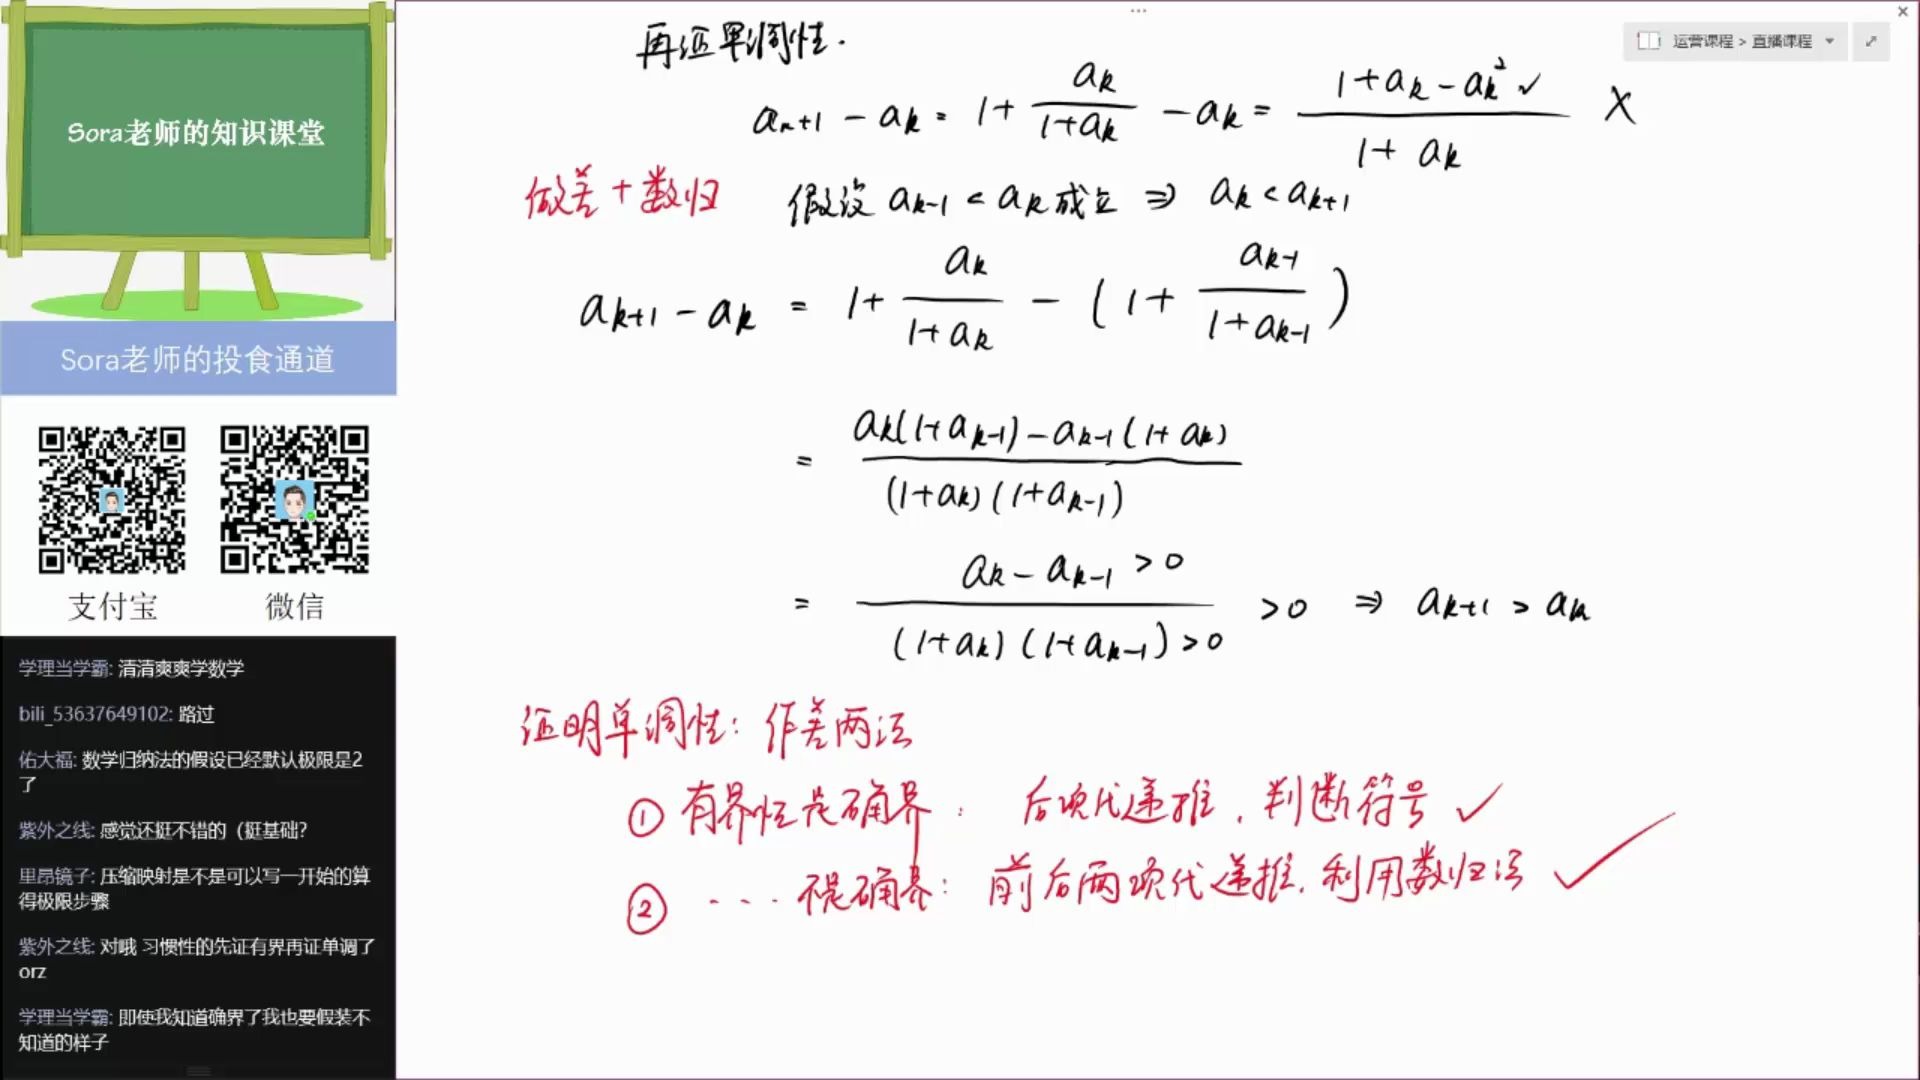 Sora老师的知识课堂
Sora老师的投食通道
支付宝
微信
学理当学霸: 清清爽爽学数学
bili_53637649102: 路过
佑大福: 数学归纳法的假设已经默认极限是2
了
紫外之线: 感觉还挺不错的（挺基础?
里昂镜子: 压缩映射是不是可以写一开始的算
得极限步骤
紫外之线: 对哦 习惯性的先证有界再证单调了
orz
学理当学霸: 即使我知道确界了我也要假装不
知道的样子
运营课程 > 直播课程
再证单调性.
a_{n+1} - a_k = 1 + \frac{a_k}{1+a_k} - a_k = \frac{1+a_k-a_k^2 ✓}{1+a_k} X
做差+数归
假设 a_{k-1} < a_k 成立 ⇒ a_k < a_{k+1}
a_{k+1} - a_k = 1 + \frac{a_k}{1+a_k} - (1 + \frac{a_{k-1}}{1+a_{k-1}})
= \frac{a_k(1+a_{k-1}) - a_{k-1}(1+a_k)}{(1+a_k)(1+a_{k-1})}
= \frac{a_k - a_{k-1} > 0}{(1+a_k)(1+a_{k-1}) > 0} > 0 ⇒ a_{k+1} > a_k
证明单调性: 作差两法
① 有界性是确界: 后项代递推, 判断符号 ✓
② ... 不是确界: 前后两项代递推, 利用数归法 ✓